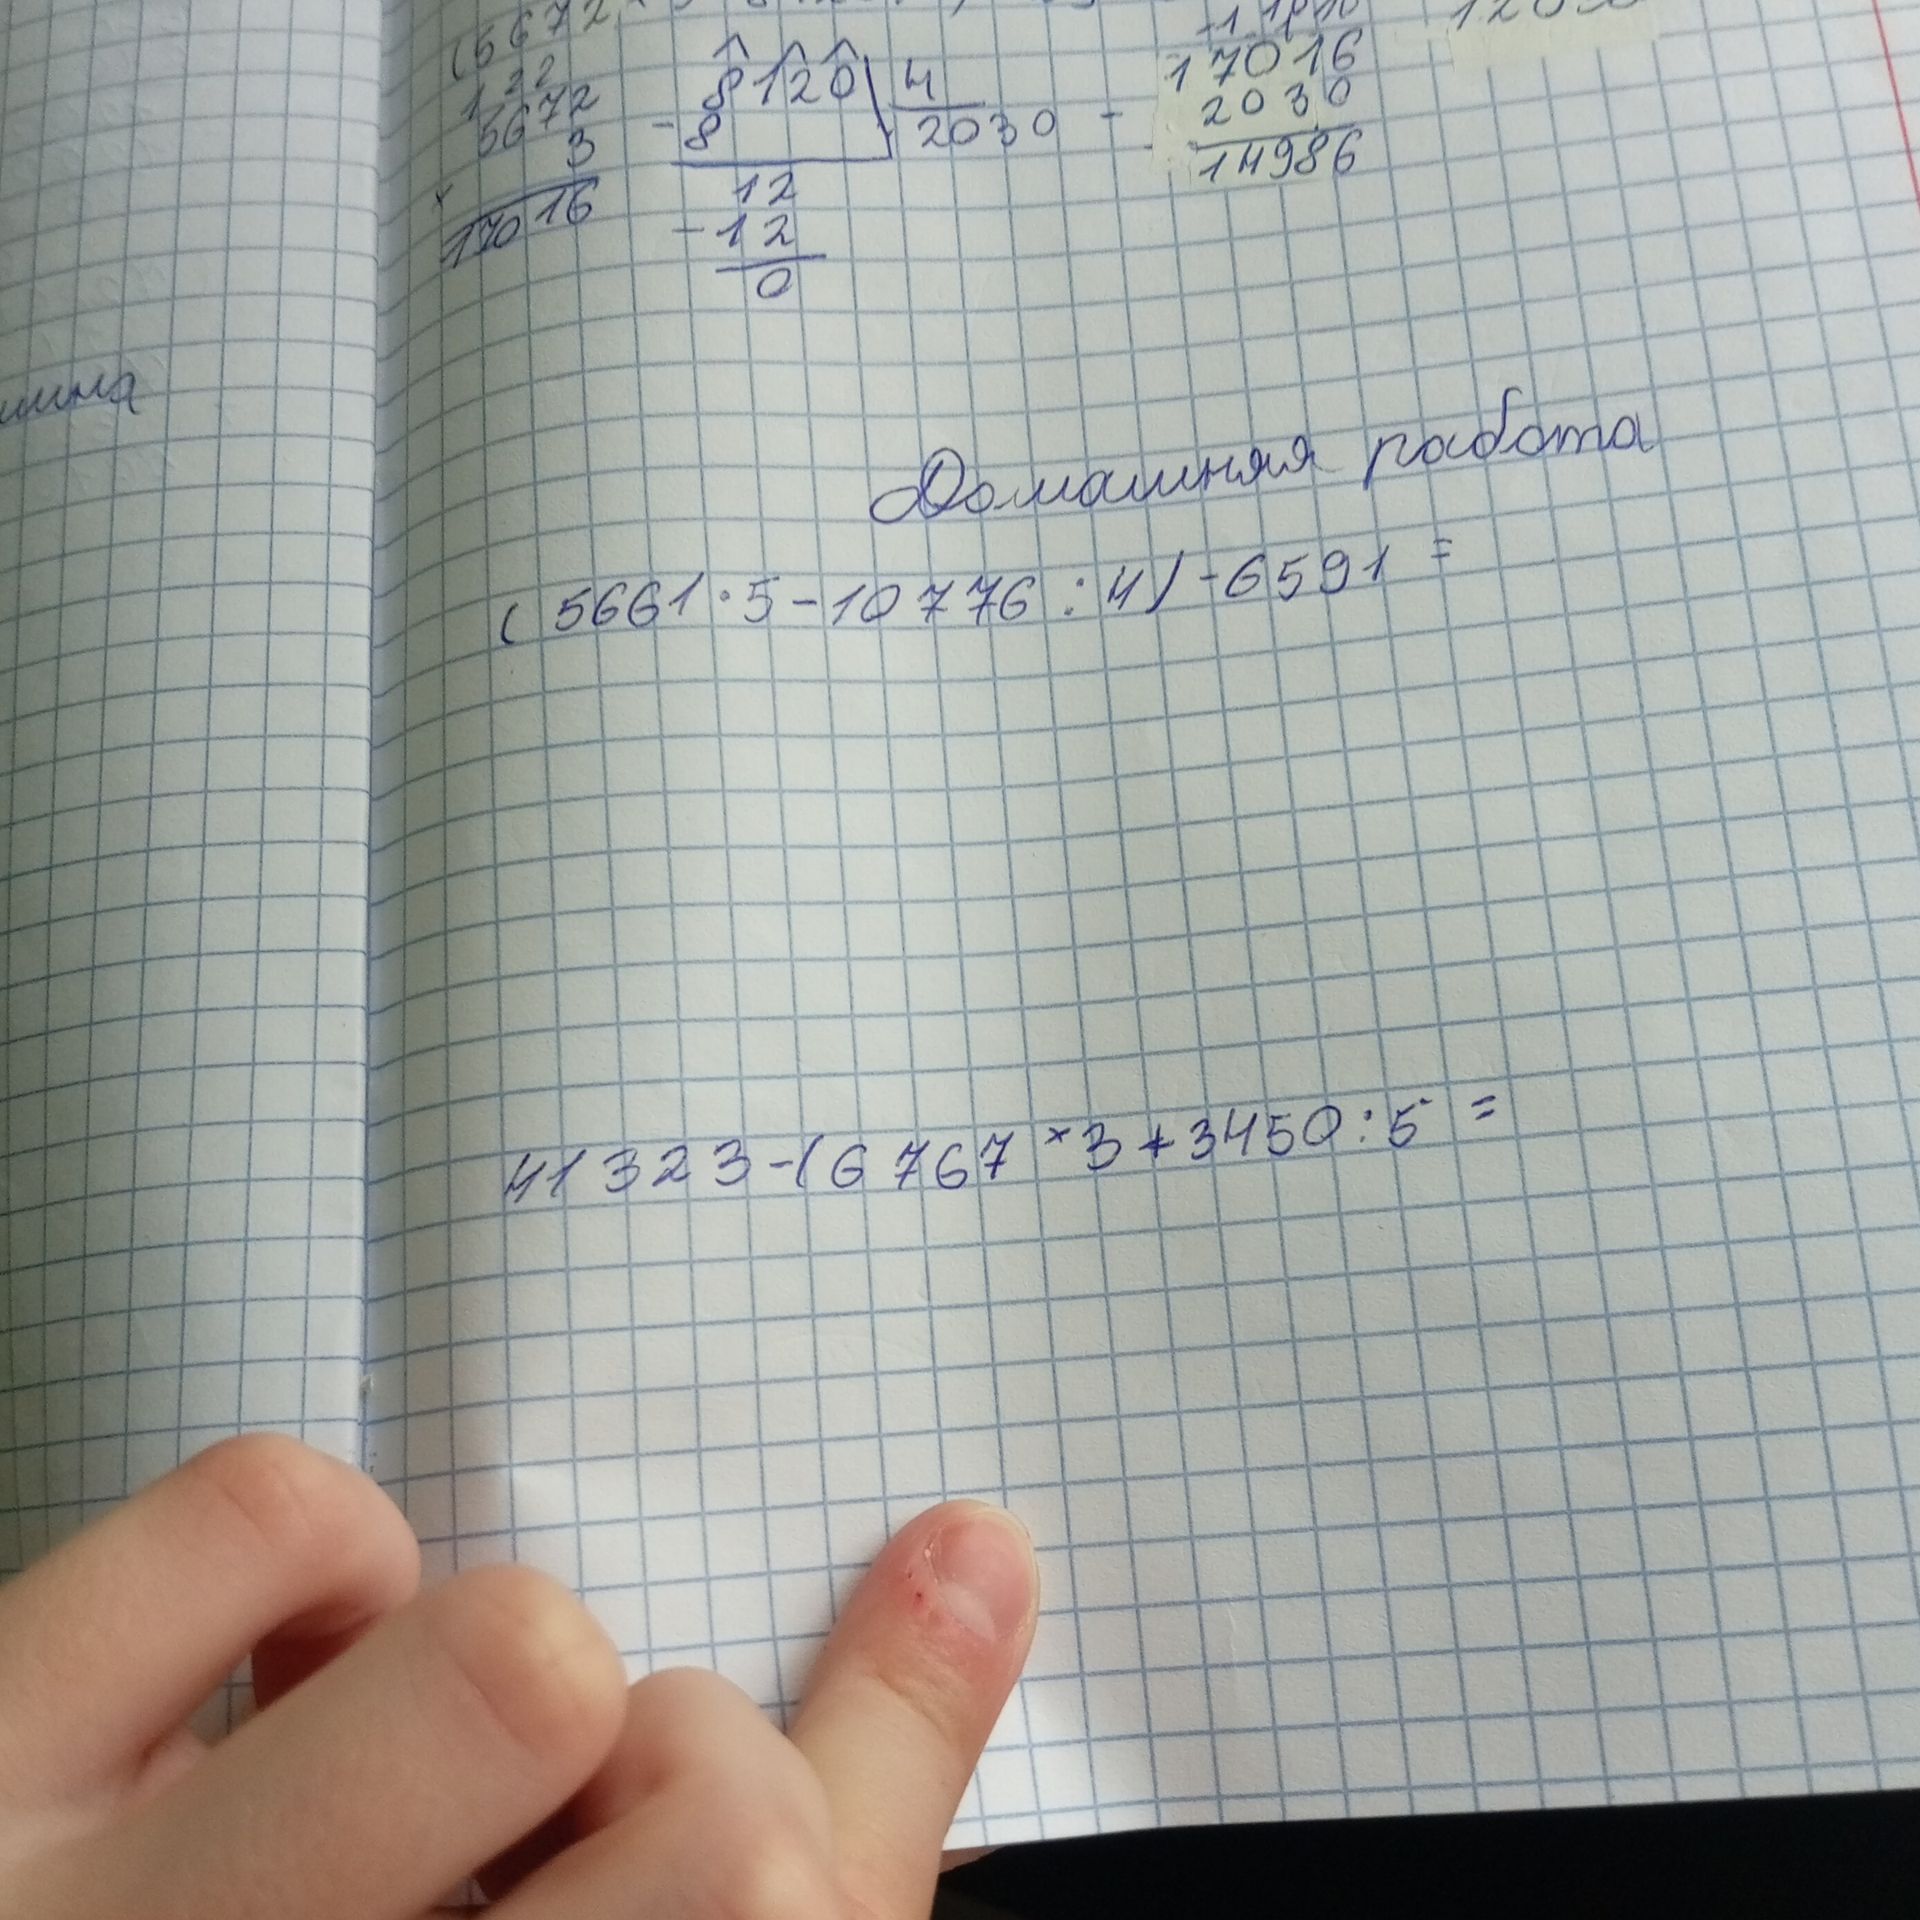 (5672
1 2 2
5672
3
×
17016
8120 4
- 8 2030
12
- 12
0
17016
- 2030
14986
мина
Домашняя работа
(5661·5-10776:4)-6591=
41323-(6767×3+3450:5=